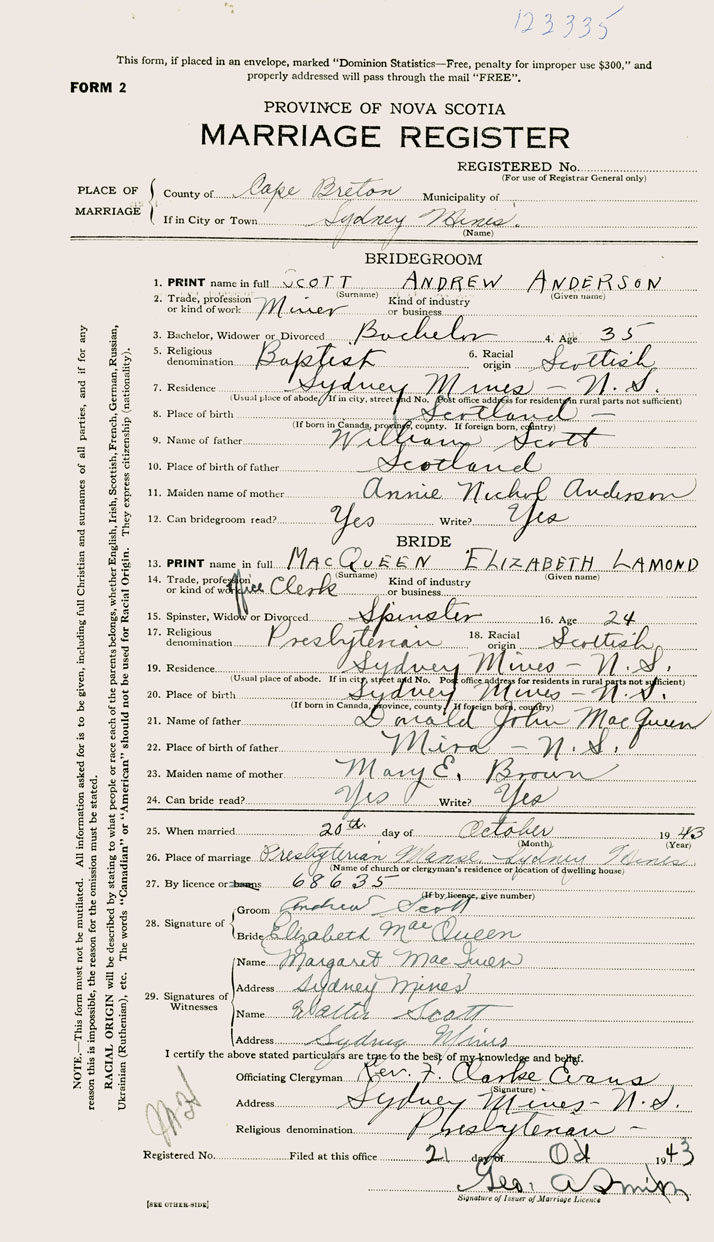 123335
This form, if placed in an envelope, marked "Dominion Statistics—Free, penalty for improper use $300," and
properly addressed will pass through the mail "FREE".
FORM 2
PROVINCE OF NOVA SCOTIA
MARRIAGE REGISTER
REGISTERED No.
(For use of Registrar General only)
PLACE OF MARRIAGE
County of Cape Breton Municipality of
If in City or Town Sydney Mines.
(Name)
BRIDEGROOM
1. PRINT name in full SCOTT ANDREW ANDERSON
(Surname) (Given name)
2. Trade, profession or kind of work Miner Kind of industry or business
3. Bachelor, Widower or Divorced Bachelor 4. Age 35
5. Religious denomination Baptist 6. Racial origin Scottish
7. Residence Sydney Mines – N.S.
(Usual place of abode. If in city, street and No. Post office address for residents in rural parts not sufficient)
8. Place of birth Scotland –
(If born in Canada, province, county. If foreign born, country)
9. Name of father William Scott
10. Place of birth of father Scotland
11. Maiden name of mother Annie Nichol Anderson
12. Can bridegroom read? Yes Write? Yes
BRIDE
13. PRINT name in full MACQUEEN ELIZABETH LAMOND
(Surname) (Given name)
14. Trade, profession or kind of work Office Clerk Kind of industry or business
15. Spinster, Widow or Divorced Spinster 16. Age 24
17. Religious denomination Presbyterian 18. Racial origin Scottish
19. Residence Sydney Mines – N.S.
(Usual place of abode. If in city, street and No. Post office address for residents in rural parts not sufficient)
20. Place of birth Sydney Mines – N.S.
(If born in Canada, province, county. If foreign born, country)
21. Name of father Donald John MacQueen
22. Place of birth of father Mira – N.S.
23. Maiden name of mother Mary E. Brown
24. Can bride read? Yes Write? Yes
25. When married 20th day of October 1943
(Month) (Year)
26. Place of marriage Presbyterian Manse, Sydney Mines
(Name of church or clergyman's residence or location of dwelling house)
27. By licence or banns 68635
(If by licence, give number)
28. Signature of
Groom Andrew Scott
Bride Elizabeth MacQueen
29. Signatures of Witnesses
Name Margaret Mac
Address Sydney Mines
Name Walter Scott
Address Sydney Mines
I certify the above stated particulars are true to the best of my knowledge and belief.
Officiating Clergyman Rev. F. Clarke Evans
(Signature)
Address Sydney Mines – N.S.
Religious denomination Presbyterian –
Registered No. Filed at this office 21 day of Oct 1943
Geo. A Smith
Signature of Issuer of Marriage Licence
[SEE OTHER-SIDE]
NOTE.—This form must not be mutilated. All information asked for is to be given, including full Christian and surnames of all parties, and if for any
reason this is impossible, the reason for the omission must be stated.
RACIAL ORIGIN will be described by stating to what people or race each of the parents belongs, whether English, Irish, Scottish, French, German, Russian,
Ukrainian (Ruthenian), etc. The words "Canadian" or "American" should not be used for Racial Origin. They express citizenship (nationality).